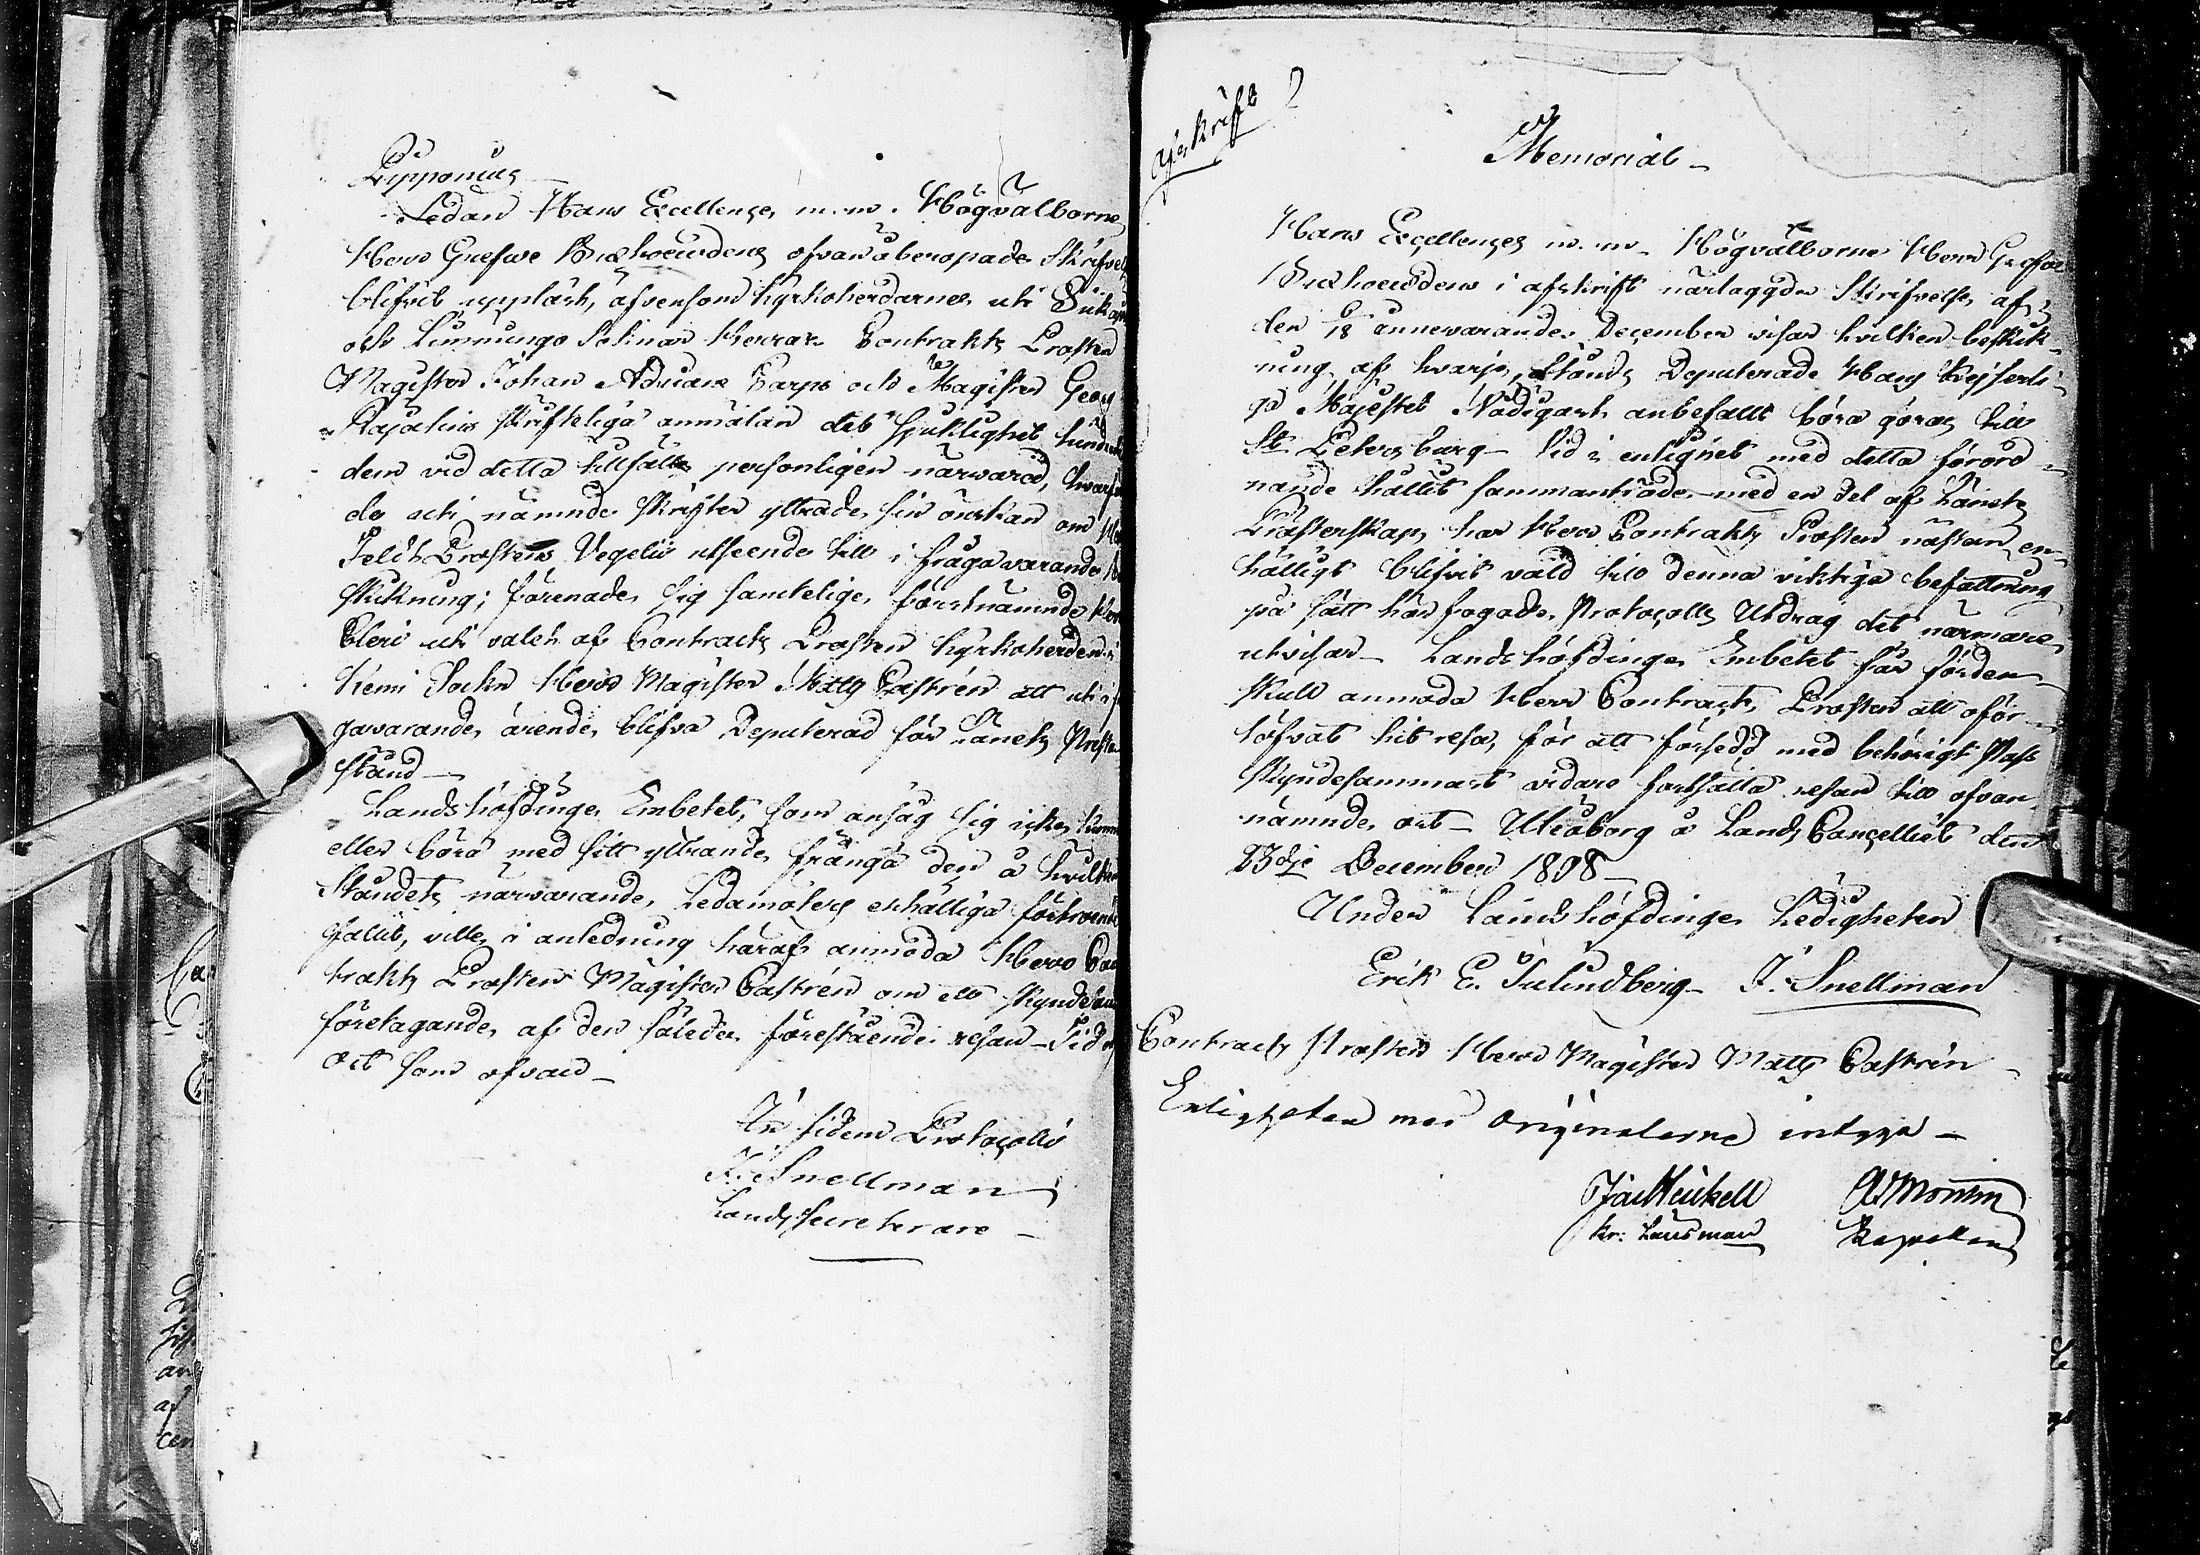 Lipponius
Sedan Hans Excellences m.m. Högvälborne
Herr Grefwe Buxhoewdens ofvanåberopade Skrifvelse
blifvit uppläst, äfvensom Kyrkoherdarnes uti
och Limmingo Soknar Herrar Contrakts Prosten
Magister Johan Adrian Carps och Magister Georg
Rajalins skrifteliga anmälan det sjuklighet
dem vid detta tillfälle personligen närwarod,
de uti nämnde skrifter yttrade sin önskan om
Feldt Prostens Vegelii utseende till i frågavarande
skickning; förenade sig samtelige förstnämnde
Cleri uti valet af Contracts Prosten Kyrkoherden i
Kemi Sockn Herr Magister Matts Castrén att uti
gavarande ärende blifva Deputerad för Länets
stånd –
Landshöfdinge Embetet, som ansåg sig icke kunna
eller böra med sitt yttrande frångå den å hvilken
Ståndets närvarande Ledamöters enhälliga förtroende
fallit, ville i anledning häraf anmoda Herr
trakts Prosten Magister Castrén om ett
företagande af den således förestående resan – Tid
ort som ofvan –
In fidem Protocolli
J. Snellman
Lands Secreterare –
Afskrift
Memorial –
Hans Excellences m.m. Högvälborne Herr Grefve
Buxhoewdens i afskrift närlaggde Skrifvelse af
den 6/18 innevarande December visar hvilken beskick-
ning af hvarje Stånds Deputerade Hans Kejserli-
ga Majestet Nådigast anbefallt böra göras till
St. Petersburg – Vid i enlighet med detta förord-
nande hållit sammanträde med en del af Länets
Presterskap, har Herr Contrakts Prosten nästan en-
hälligt blifvit vald till denna viktiga befattning
på sätt härfogade Protocolls Utdrag det närmare
utvisar – Landshöfdinge Embetet får förden-
skull anmoda Herr Contracts Prosten att oför-
töfvat hit resa, för att försedd med behörigt Pass
skyndesammast vidare fortsätta resan till ofvan-
nämnde ort – Uleåborg å Lands Cancelliet den
23dje December 1808 –
Under Landshöfdinge Ledigheten
Erik E. Tulindberg – J. Snellman
Contracts Prosten Herr Magister Matts Castrén –
Enligheten med Originalerne intyga –
Heickell
Kr: Länsman